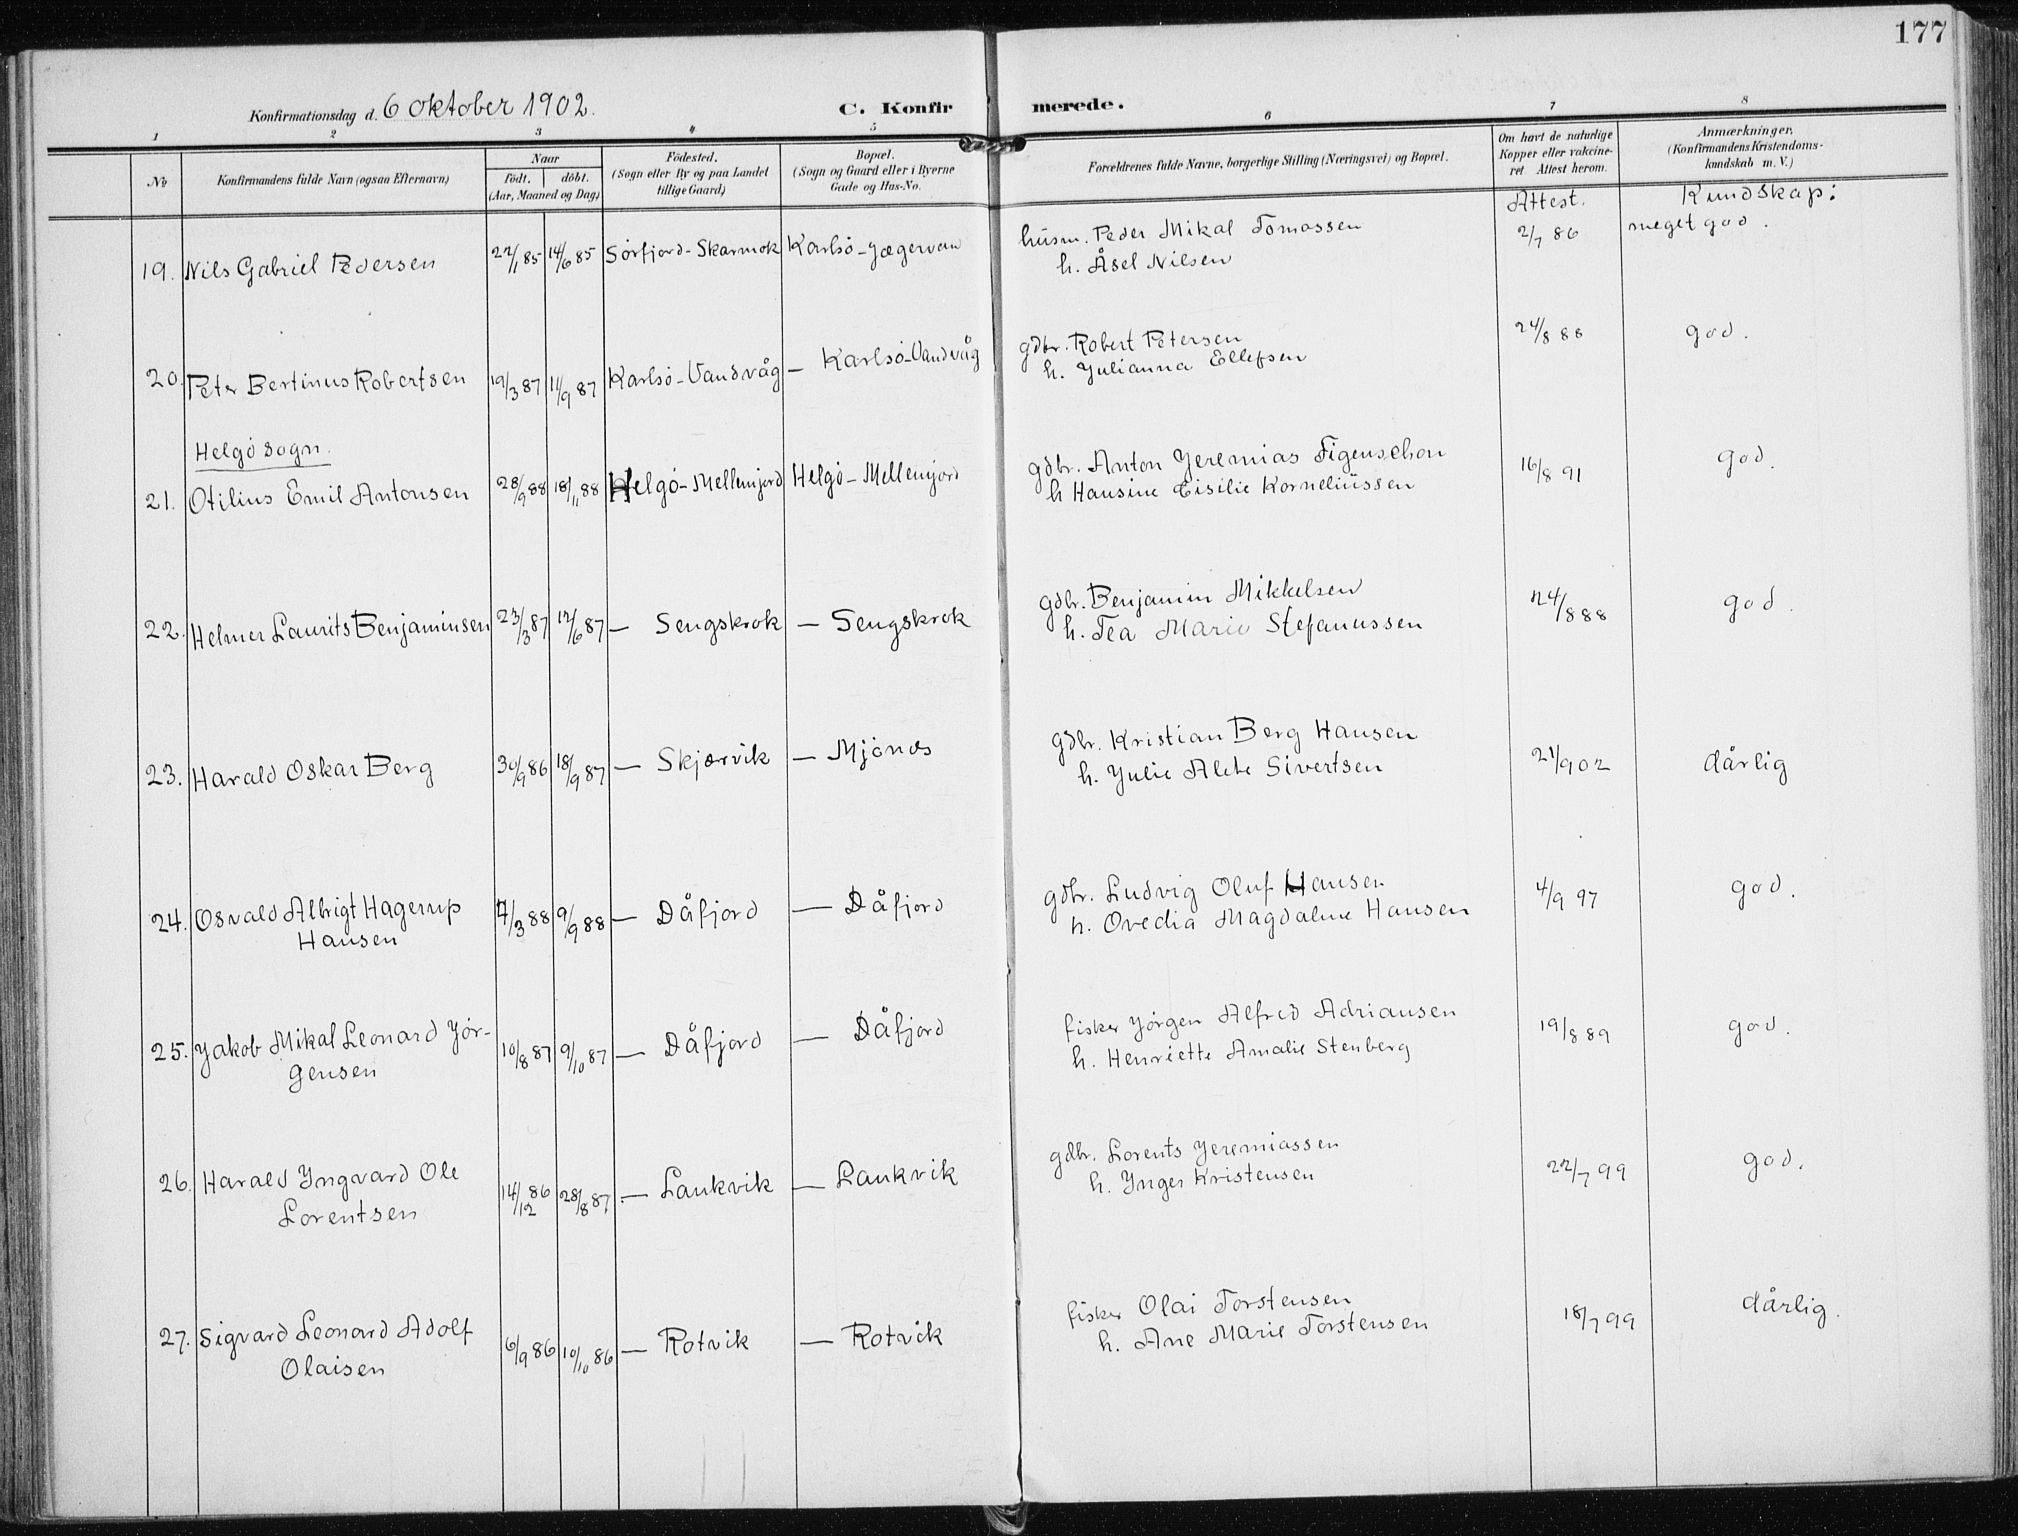 177
Konfirmationsdag d. 6 oktober 1902. C. Konfirmerede.
1 2 3 4 5 6 7 8
No Konfirmandens fulde Navn (ogsaa Efternavn) Naar født. døbt. (Aar, Maaned og Dag) Fødested. (Sogn eller By og paa Landet tillige Gaard) Bopæl. (Sogn og Gaard eller i Byerne Gade og Hus-No. Forældrenes fulde Navne, borgerlige Stilling (Næringsvei) og Bopæl. Om havt de naturlige Kopper eller vakcineret. Attest herom. Anmærkninger. (Konfirmandens Kristendomskundskab m. V.)
Attest. Kundskap:
19. Nils Gabriel Pedersen 22/1 85 14/6 85 Sørfjord-Skarmok Karlsø-Jægervan husm. Peder Mikal Tomassen 2/7 86 meget god.
h. Åsel Nilsen
20. Peter Bertinus Robertsen 19/3 87 11/9 87 Karlsø-Vandvåg — Karlsø-Vandvåg gdbr. Robert Petersen 24/8 88 god.
h. Julianna Ellefsen
Helgø sogn.
21. Otilius Emil Antonsen 28/9 88 18/11 88 Helgø-Mellemjord Helgø-Mellemjord gdbr. Anton Jeremias Figenschou 16/8 91 god.
h Hansine Eisilie Korneliussen
22. Helmer Laurits Benjaminsen 23/3 87 12/6 87 — Sengskrok — Sengskrok gdbr. Benjamin Mikkelsen 24/8 88 god.
h. Tea Marie Stefanussen
23. Harald Oskar Berg 30/9 86 18/9 87 — Skjærvik — Mjønæs gdbr. Kristian Berg Hansen 21/9 02 dårlig
h. Julie Alete Sivertsen
24. Osvald Albrigt Hagerup 7/3 88 9/9 88 — Dåfjord — Dåfjord gdbr. Ludvig Oluf Hansen 4/9 97 god.
Hansen h. Ovedia Magdalene Hansen
25. Jakob Mikal Leonard Jør- 10/8 87 9/10 87 — Dåfjord — Dåfjord fisker Jørgen Alfred Adriansen 19/8 89 god.
gensen h. Henriette Amalie Stenberg
26. Harald Yngvard Ole 14/12 86 28/8 87. — Laukvik — Laukvik gdbr. Lorents Jeremiassen 22/7 99 god.
Lorentsen h. Ynger Kristensen
27. Sigvard Leonard Adolf 6/9 86 10/10 86 — Rotvik — Rotvik fisker Olai Torstensen 18/7 99 dårlig.
Olaisen h. Ane Marie Torstensen